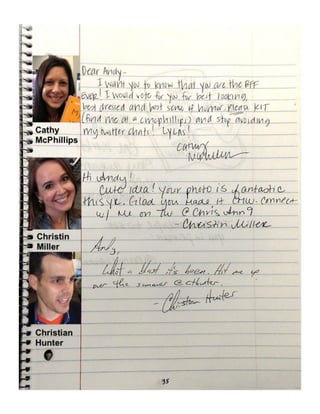 Dear Andy-
I want you to know that you are the BFF
Ever! I would vote for you for best looking,
best dressed and best sense of humor. Please KIT
(find me at @cmcphillips) and stop avoiding
my twitter chats! LYLAS!
Cathy
McPhillips
Cathy
McPhillips
Hi Andy!
Cute idea! Your photo is fantastic
this yr. Glad you made it
Connect
w/ me on TW @ChrisAnn9
- Christin Miller
Christin
Miller
Andy,
What a blast it's been. Hit me up
over the summer @cthunter.
- Christian Hunter
Christian
Hunter
35